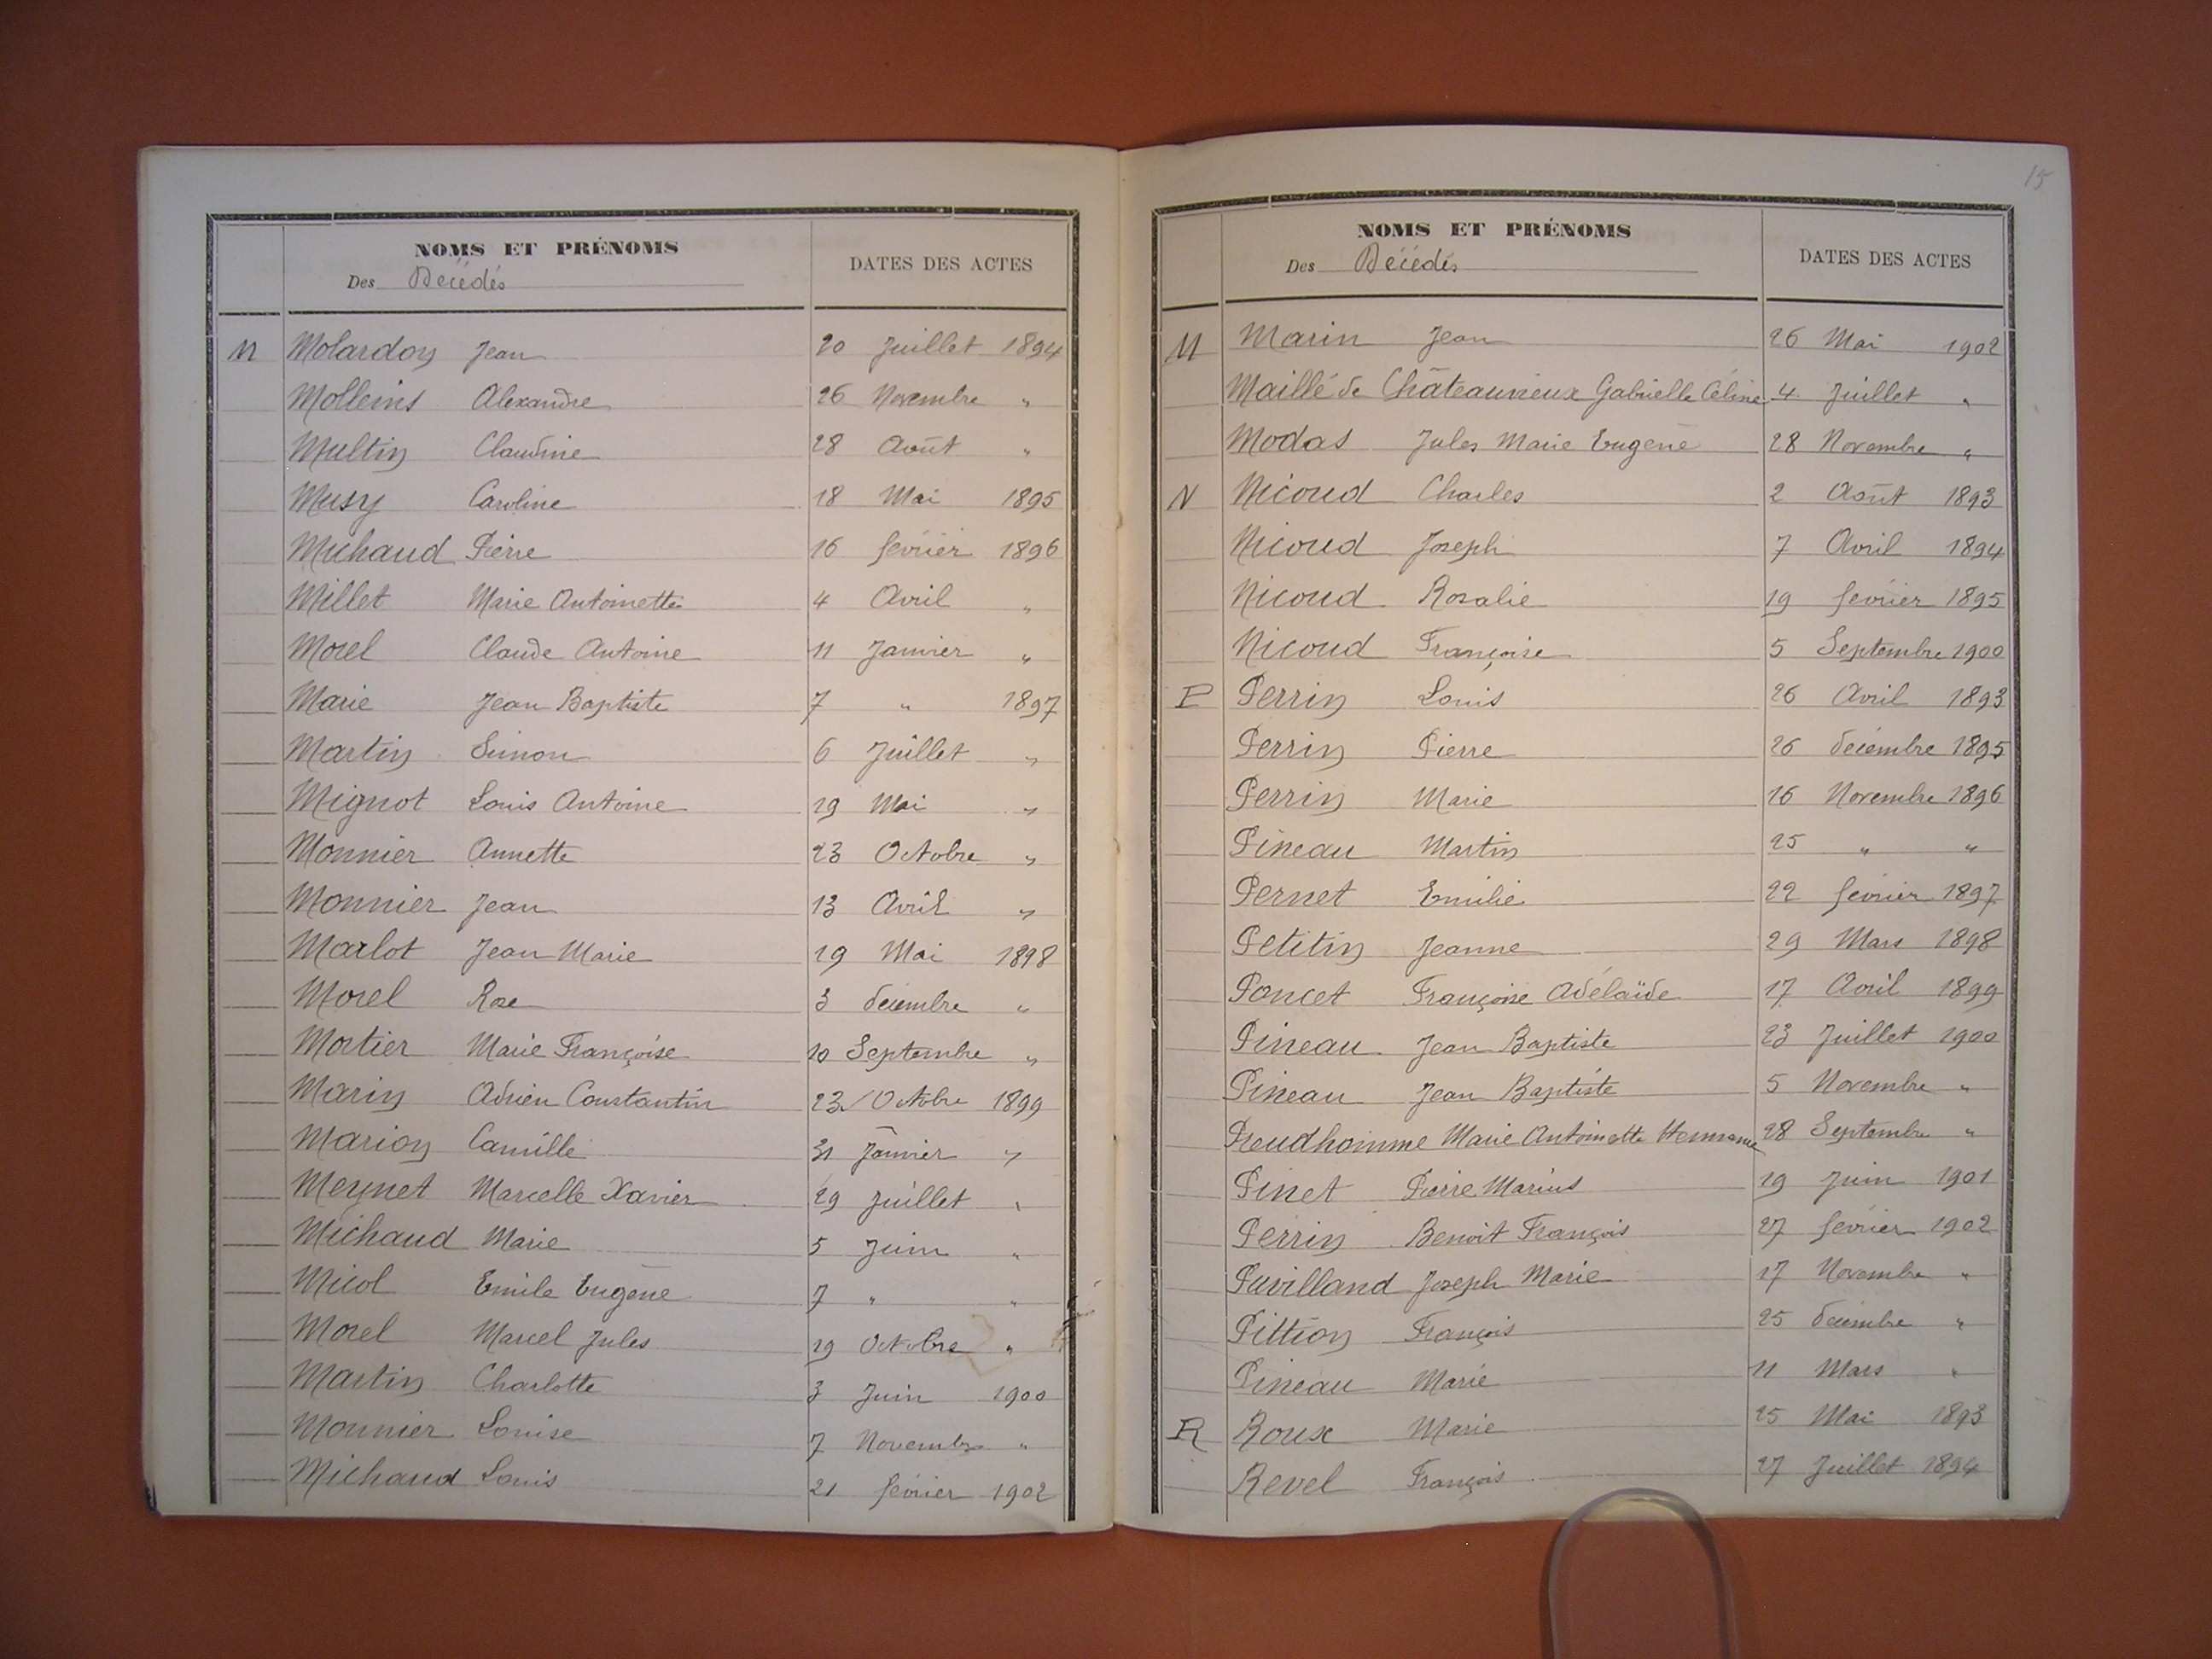 NOMS ET PRÉNOMS
Des Décédés
DATES DES ACTES
M Molardon Jean 20 Juillet 1894
Molleins Alexandre 26 Novembre "
Multin Claudine 28 Août "
Musy Caroline 18 Mai 1895
Michaud Pierre 16 février 1896
Millet Marie Antoinette 4 Avril "
Morel Claude Antoine 11 Janvier "
Marie Jean Baptiste 7 " 1897
Martin Simon 6 Juillet "
Mignot Louis Antoine 29 Mai "
Monnier Annette 23 Octobre "
Monnier Jean 13 Avril "
Marlot Jean Marie 29 Mai 1898
Morel Rose 3 décembre "
Mortier Marie Françoise 10 Septembre "
Marin Adrien Constantin 23 Octobre 1899
Marion Camille 31 Janvier "
Meynet Marcelle Xavier 29 Juillet "
Michaud Marie 5 Juin "
Micol Emile Eugène 7 " "
Morel Marcel Jules 29 Octobre "
Martin Charlotte 3 Juin 1900
Monnier Louise 7 Novembre "
Michaud Louis 21 février 1902
15
NOMS ET PRÉNOMS
Des Décédés
DATES DES ACTES
M Marin Jean 26 Mai 1902
Maillé de Châteauvieux Gabrielle Céline 4 Juillet "
Modas Jules Marie Eugène 28 Novembre "
N Nicoud Charles 2 Août 1893
Nicoud Joseph 7 Avril 1894
Nicoud Rosalie 19 février 1895
Nicoud Françoise 5 Septembre 1900
P Perrin Louis 26 Avril 1893
Perrin Pierre 26 décembre 1895
Perrin Marie 16 Novembre 1896
Pineau Martin 25 " "
Pernet Emilie 22 février 1897
Petitin Jeanne 29 Mars 1898
Poncet Françoise Adélaïde 17 Avril 1899
Pineau Jean Baptiste 23 Juillet 1900
Pineau Jean Baptiste 5 Novembre "
Preudhomme Marie Antoinette Hermance 28 Septembre "
Pinet Pierre Marius 19 Juin 1901
Perrin Benoit François 27 février 1902
Puvilland Joseph Marie 17 Novembre "
Pittion François 25 décembre "
Pineau Marie 11 Mars "
R Roux Marie 25 Mai 1893
Revel François 27 Juillet 1894